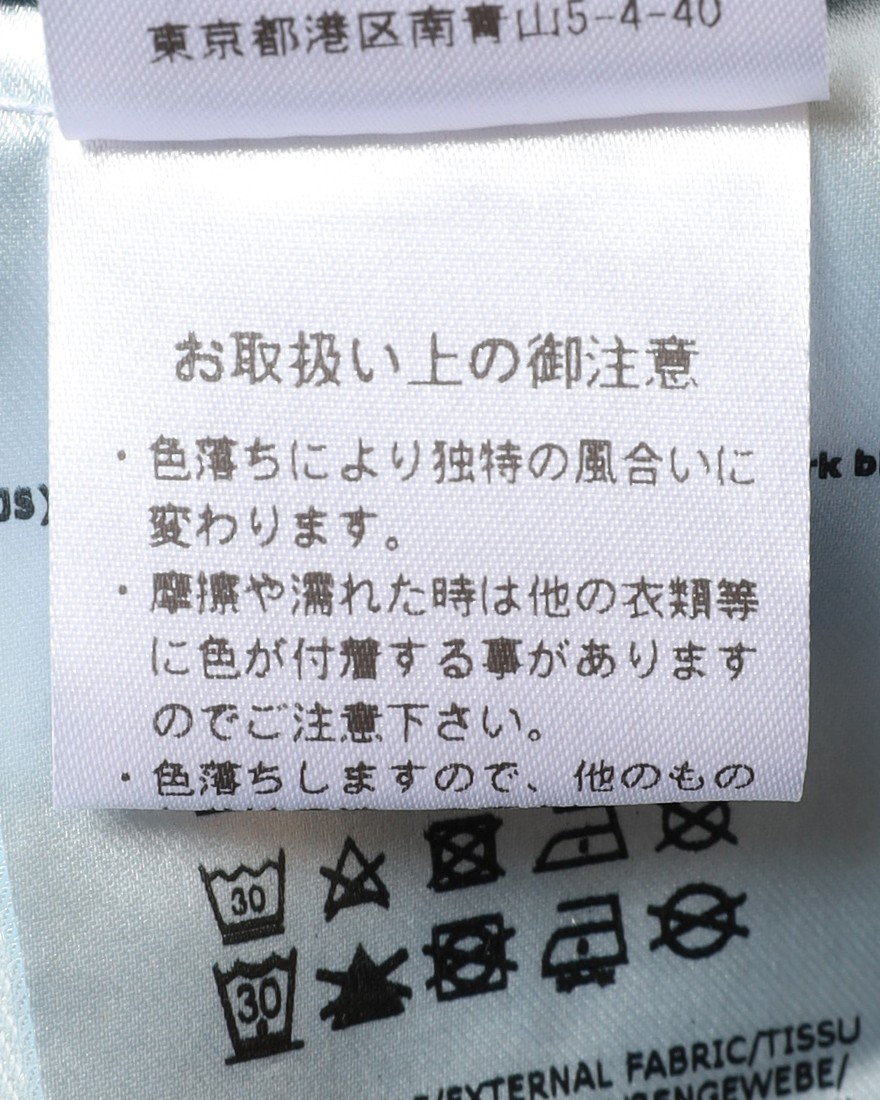 東京都港区南青山5-4-40
お取扱い上の御注意
・色落ちにより独特の風合いに
変わります。
・摩擦や濡れた時は他の衣類等
に色が付着する事があります
のでご注意下さい。
・色落ちしますので、他のもの
30
30
EXTERNAL FABRIC/TISSU